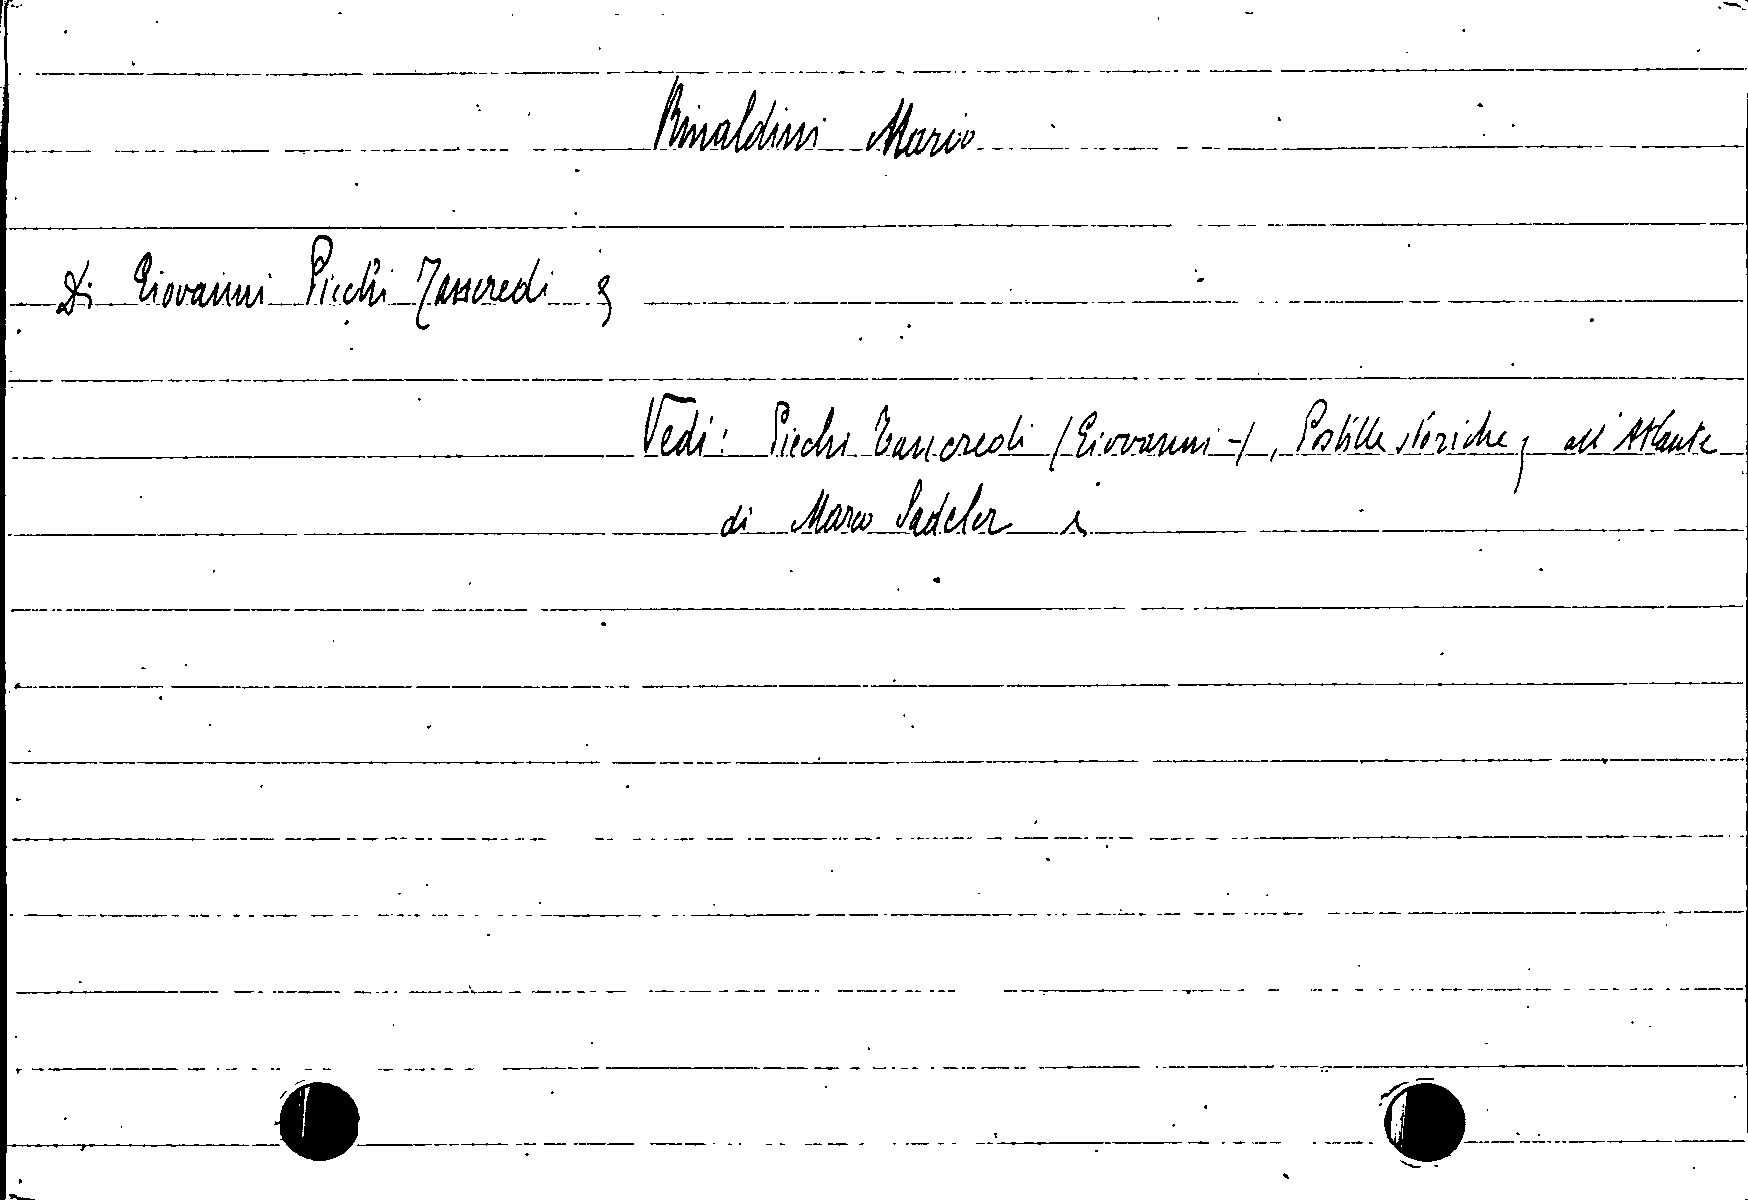 Rinaldini Mario
Di Giovanni Picchi Tancredi
Vedi: Picchi Tancredi (Giovanni -), Postille storiche all'Atlante
di Marco Sadeler